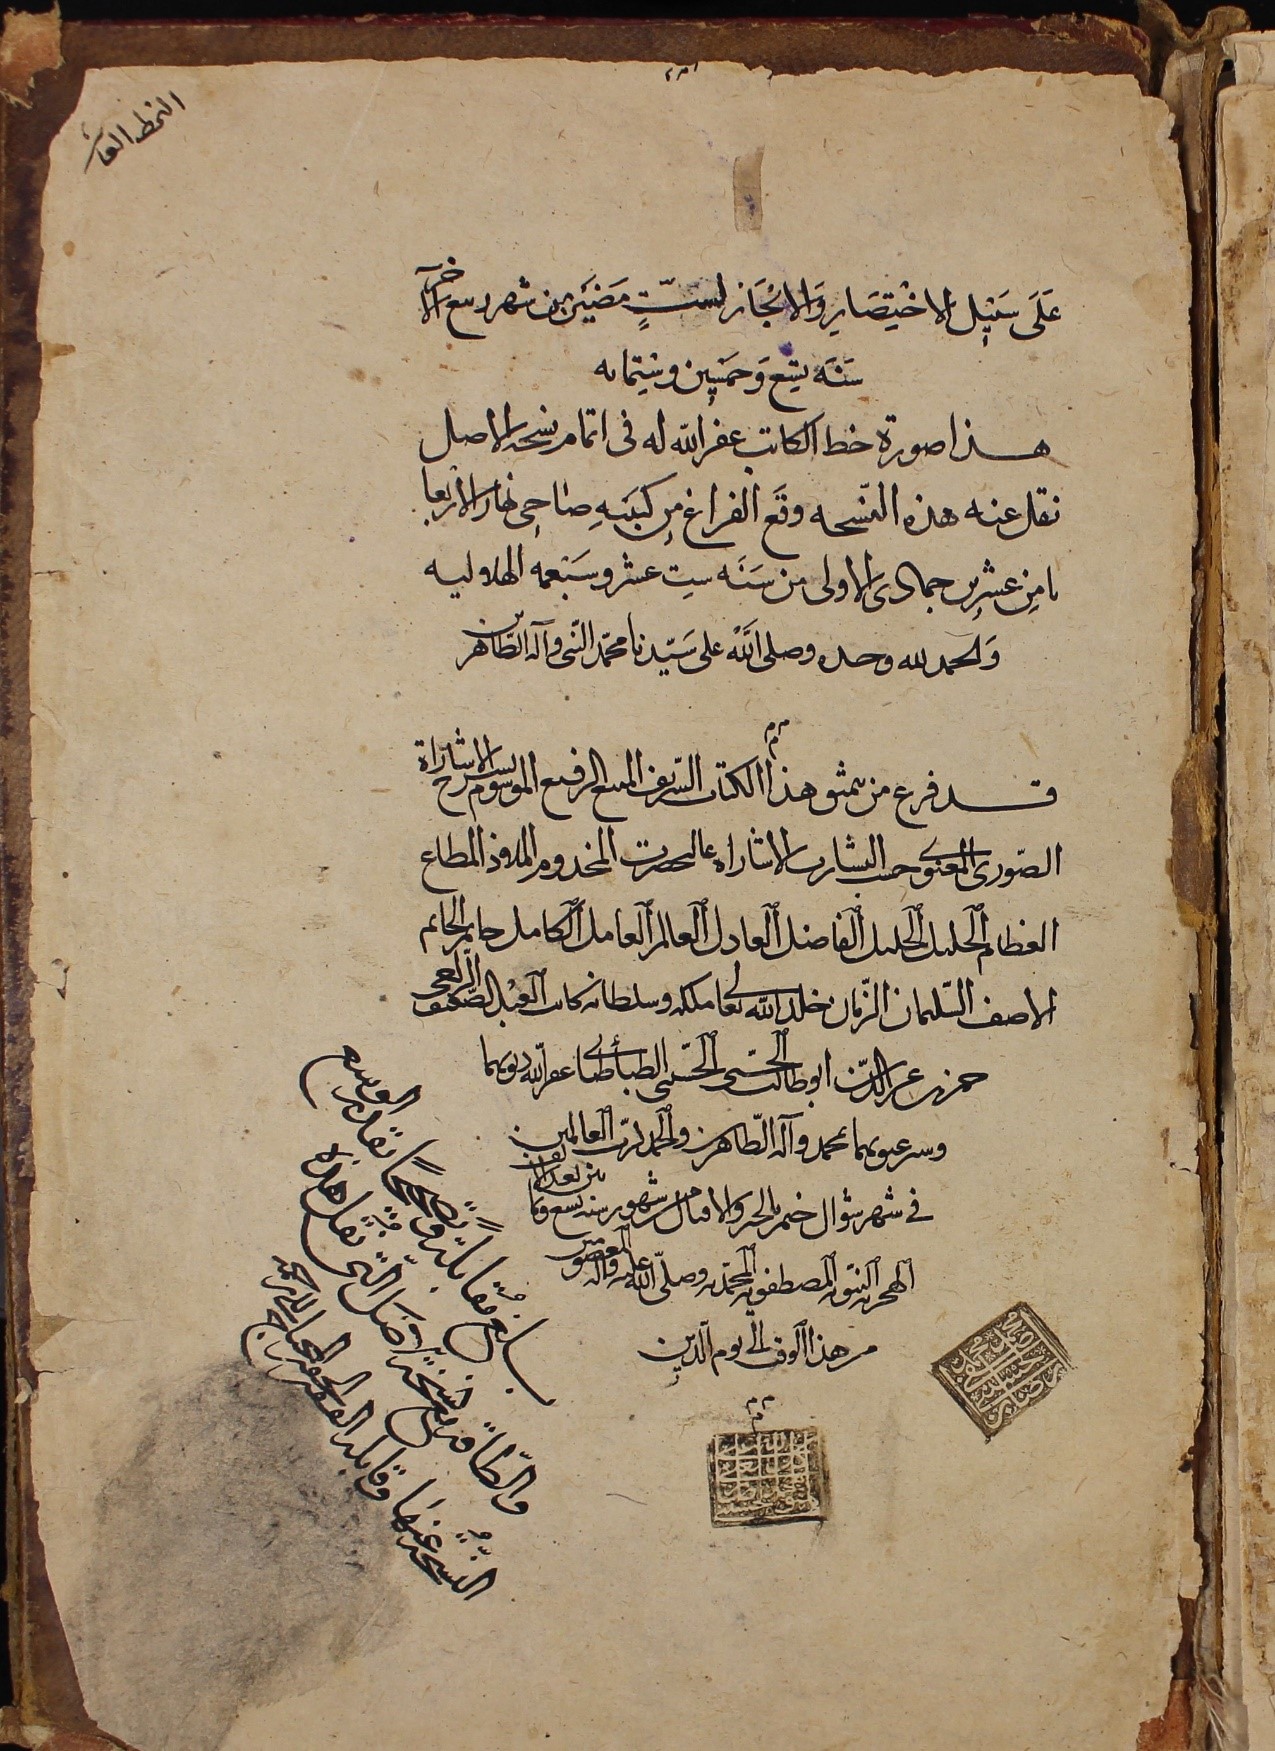 النمط العاشر
عَلَى سَبِيل الاخْتِصَارِ وَالايْجَاز لستٍّ مَضَيْنَ من شهر ربيع الآخر
سَنَة تِسْع وَخمْسِين وستمايه
هذا صورة خط الكاتب غفر الله له فى اتمام نسخه الاصل
نقل عنه هذه النسخه وقَع الفراغ مِن كتبَتِهِ ضاحِى نهار الاربعا
ثامِن عشرين جمادى الاولى من سَنَه ست عشر وسَبعمه الهلاليه
وَالحمد لله وحده وصلى اللَّه على سَيّدنا محمّد النّبى وآله الطّاهرين
قد فرغ من تنمیق هذا الكتاب الشريف المنيع الرفيع الموسوم بشرح الاشاراة
الصّورى المعنوى حسب الاشاراة عاليحضرت المخدوم الملاذ المطاع
العظام الجليل الفاضل العادل العالم العامل الكامل حاتم الخاتم
الاصف السّليمان الزّمان خلد الله تعالى ملكه وسلطانه كاتب العبد الضّعيف
حمزه بن عز الدّين ابوطالب الحسنى الحسينى الطباطبائى غفر الله ذنوبهما
وستر عيوبهما بمحمد وآله الطّاهرين والحمد لله ربّ العالمين
فى شهر شوال ختم بالخير والاقبال من شهور سنه تسع وثمانين بعد الالف
الهجريه النبويه المصطفويه المحمّديه وصلّى الله عليه وآله المعصومين
من هذا الوقت الى يوم الدين
بلغ مقابلةً وتصحيحًا بقدر الوسع
والطّاقه مع نسخة اصل التى نقل هذه
النُّسْخَة عنها وقابله الفقير الحقير المحتاج